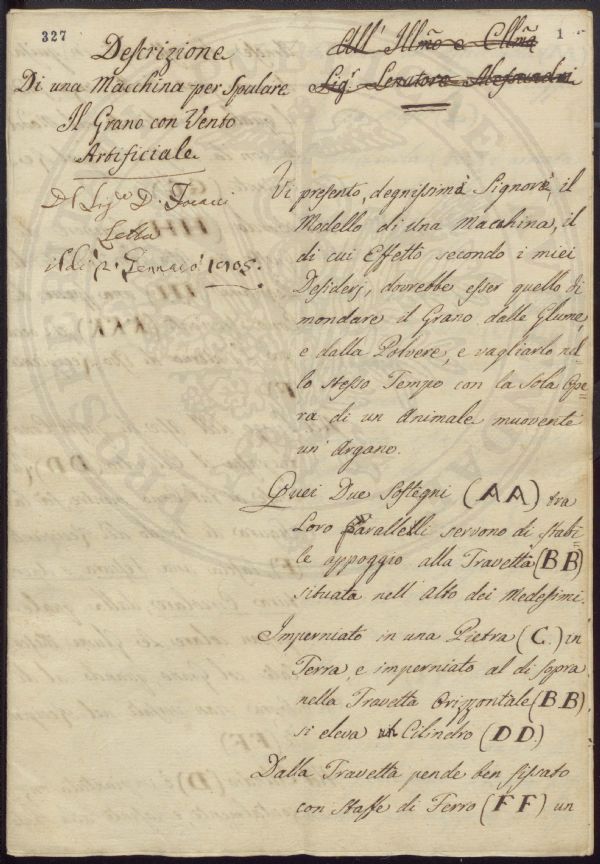 327
1
Descrizione
Di una Macchina per Spulare
Il Grano con Vento
Artificiale
All' Illmo e Cllmo
Sigr. Senatore Alessandri
Del Sigre D.
Li 2. Gennaio 1805.
Vi presento, degnissimo Signore, il
Modello di una Macchina, il
di cui Effetto secondo i miei
Desiderj, dovrebbe esser quello di
mondare il Grano dalle Glume,
e dalla Polvere, e vagliarlo nel-
lo stesso Tempo con la sola Ope=
ra di un Animale muovente
un' Argano.
Quei Due Sostegni (AA) tra
Loro Parallelli servono di stabi=
le appoggio alla Travetta (BB)
situata nell' alto dei Medesimi.
Imperniato in una Pietra (C.) in
Terra, e imperniato al di sopra
nella Travetta Orizzontale (BB)
si eleva un Cilindro (DD)
Dalla Travetta pende ben fissato
con Staffe di Ferro (FF) un